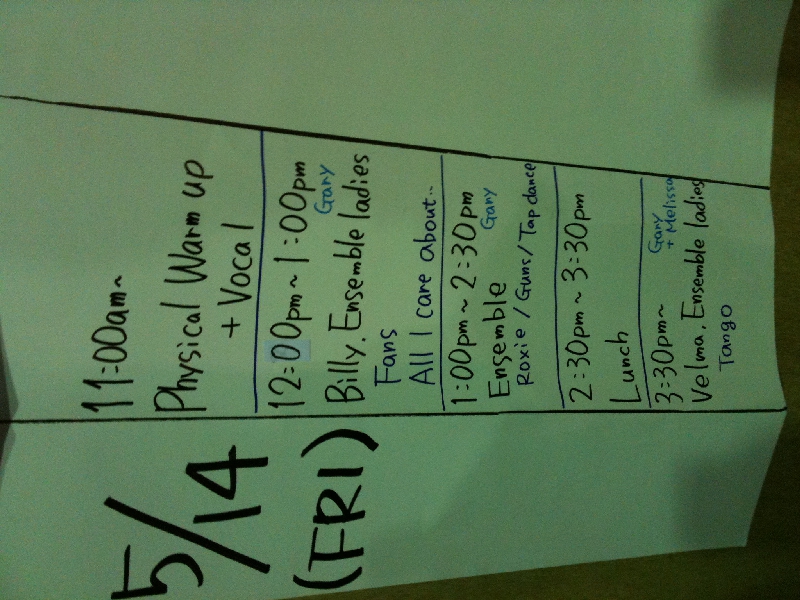 5/14
(FRI)
11:00am~
Physical Warm up
+ Vocal
12:00pm~1:00pm
Gary
Billy. Ensemble ladies
Fans
All I care about..
1:00pm~2:30pm
Gary
Ensemble
Roxie / Guns / Tap dance
2:30pm~3:30pm
Lunch
3:30pm~
Gary
+ Melissa
Velma. Ensemble ladies
Tango